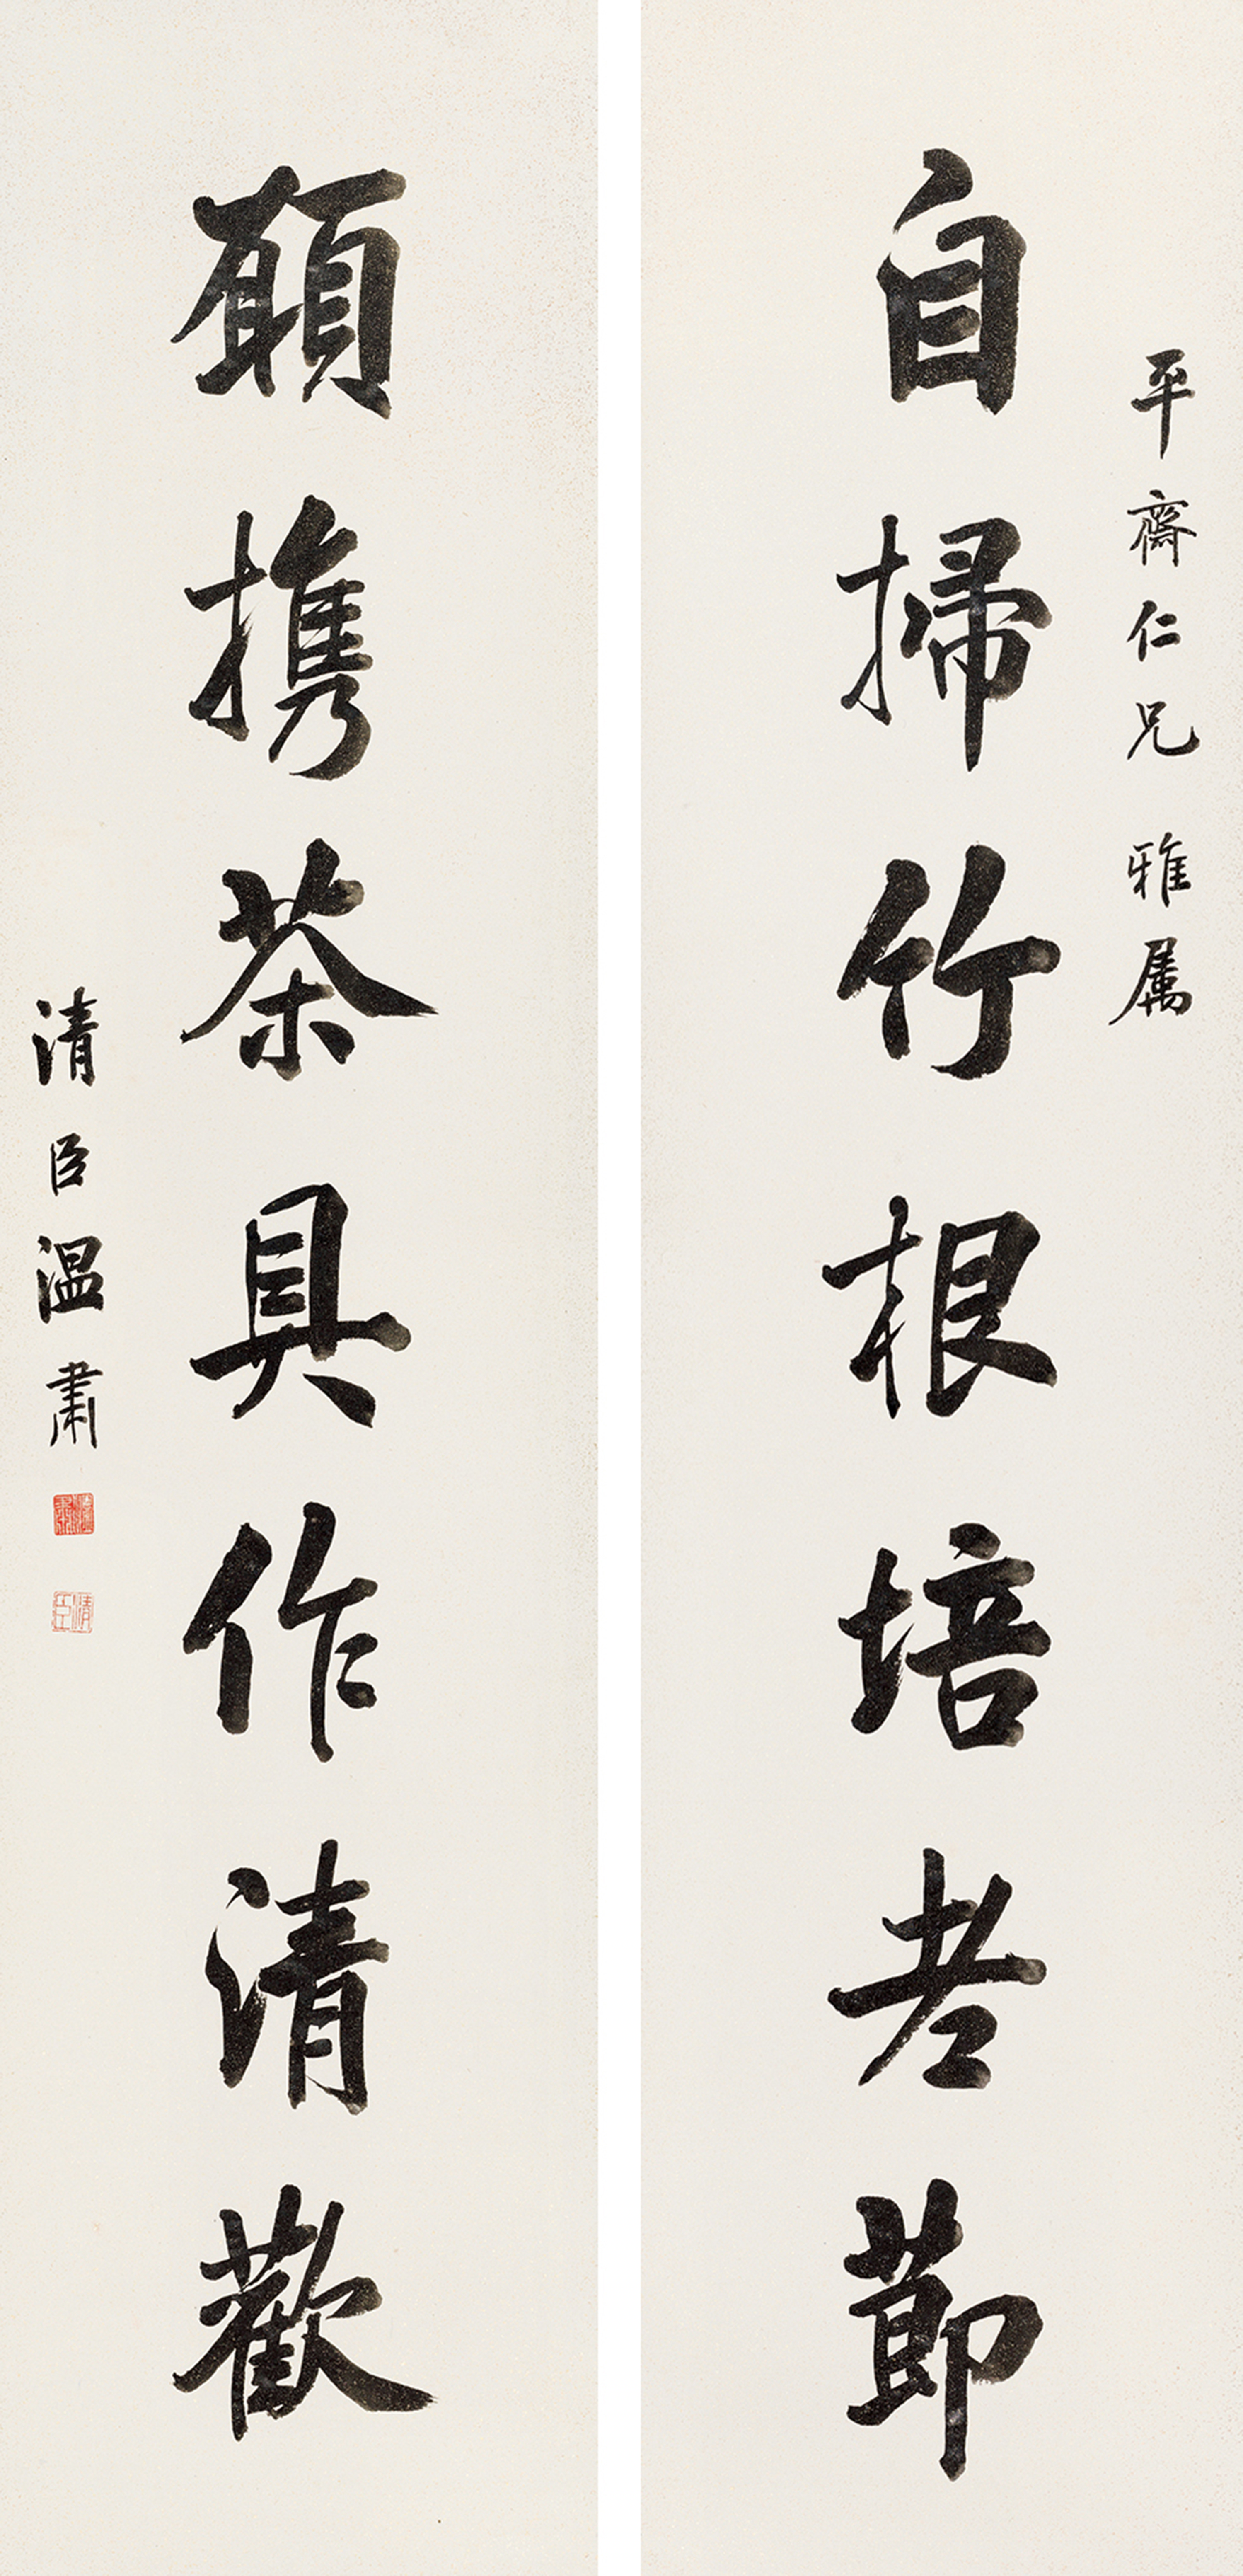 平齋仁兄雅屬
自掃竹根培老節
願携茶具作清歡
清臣溫肅
溫肅
清臣